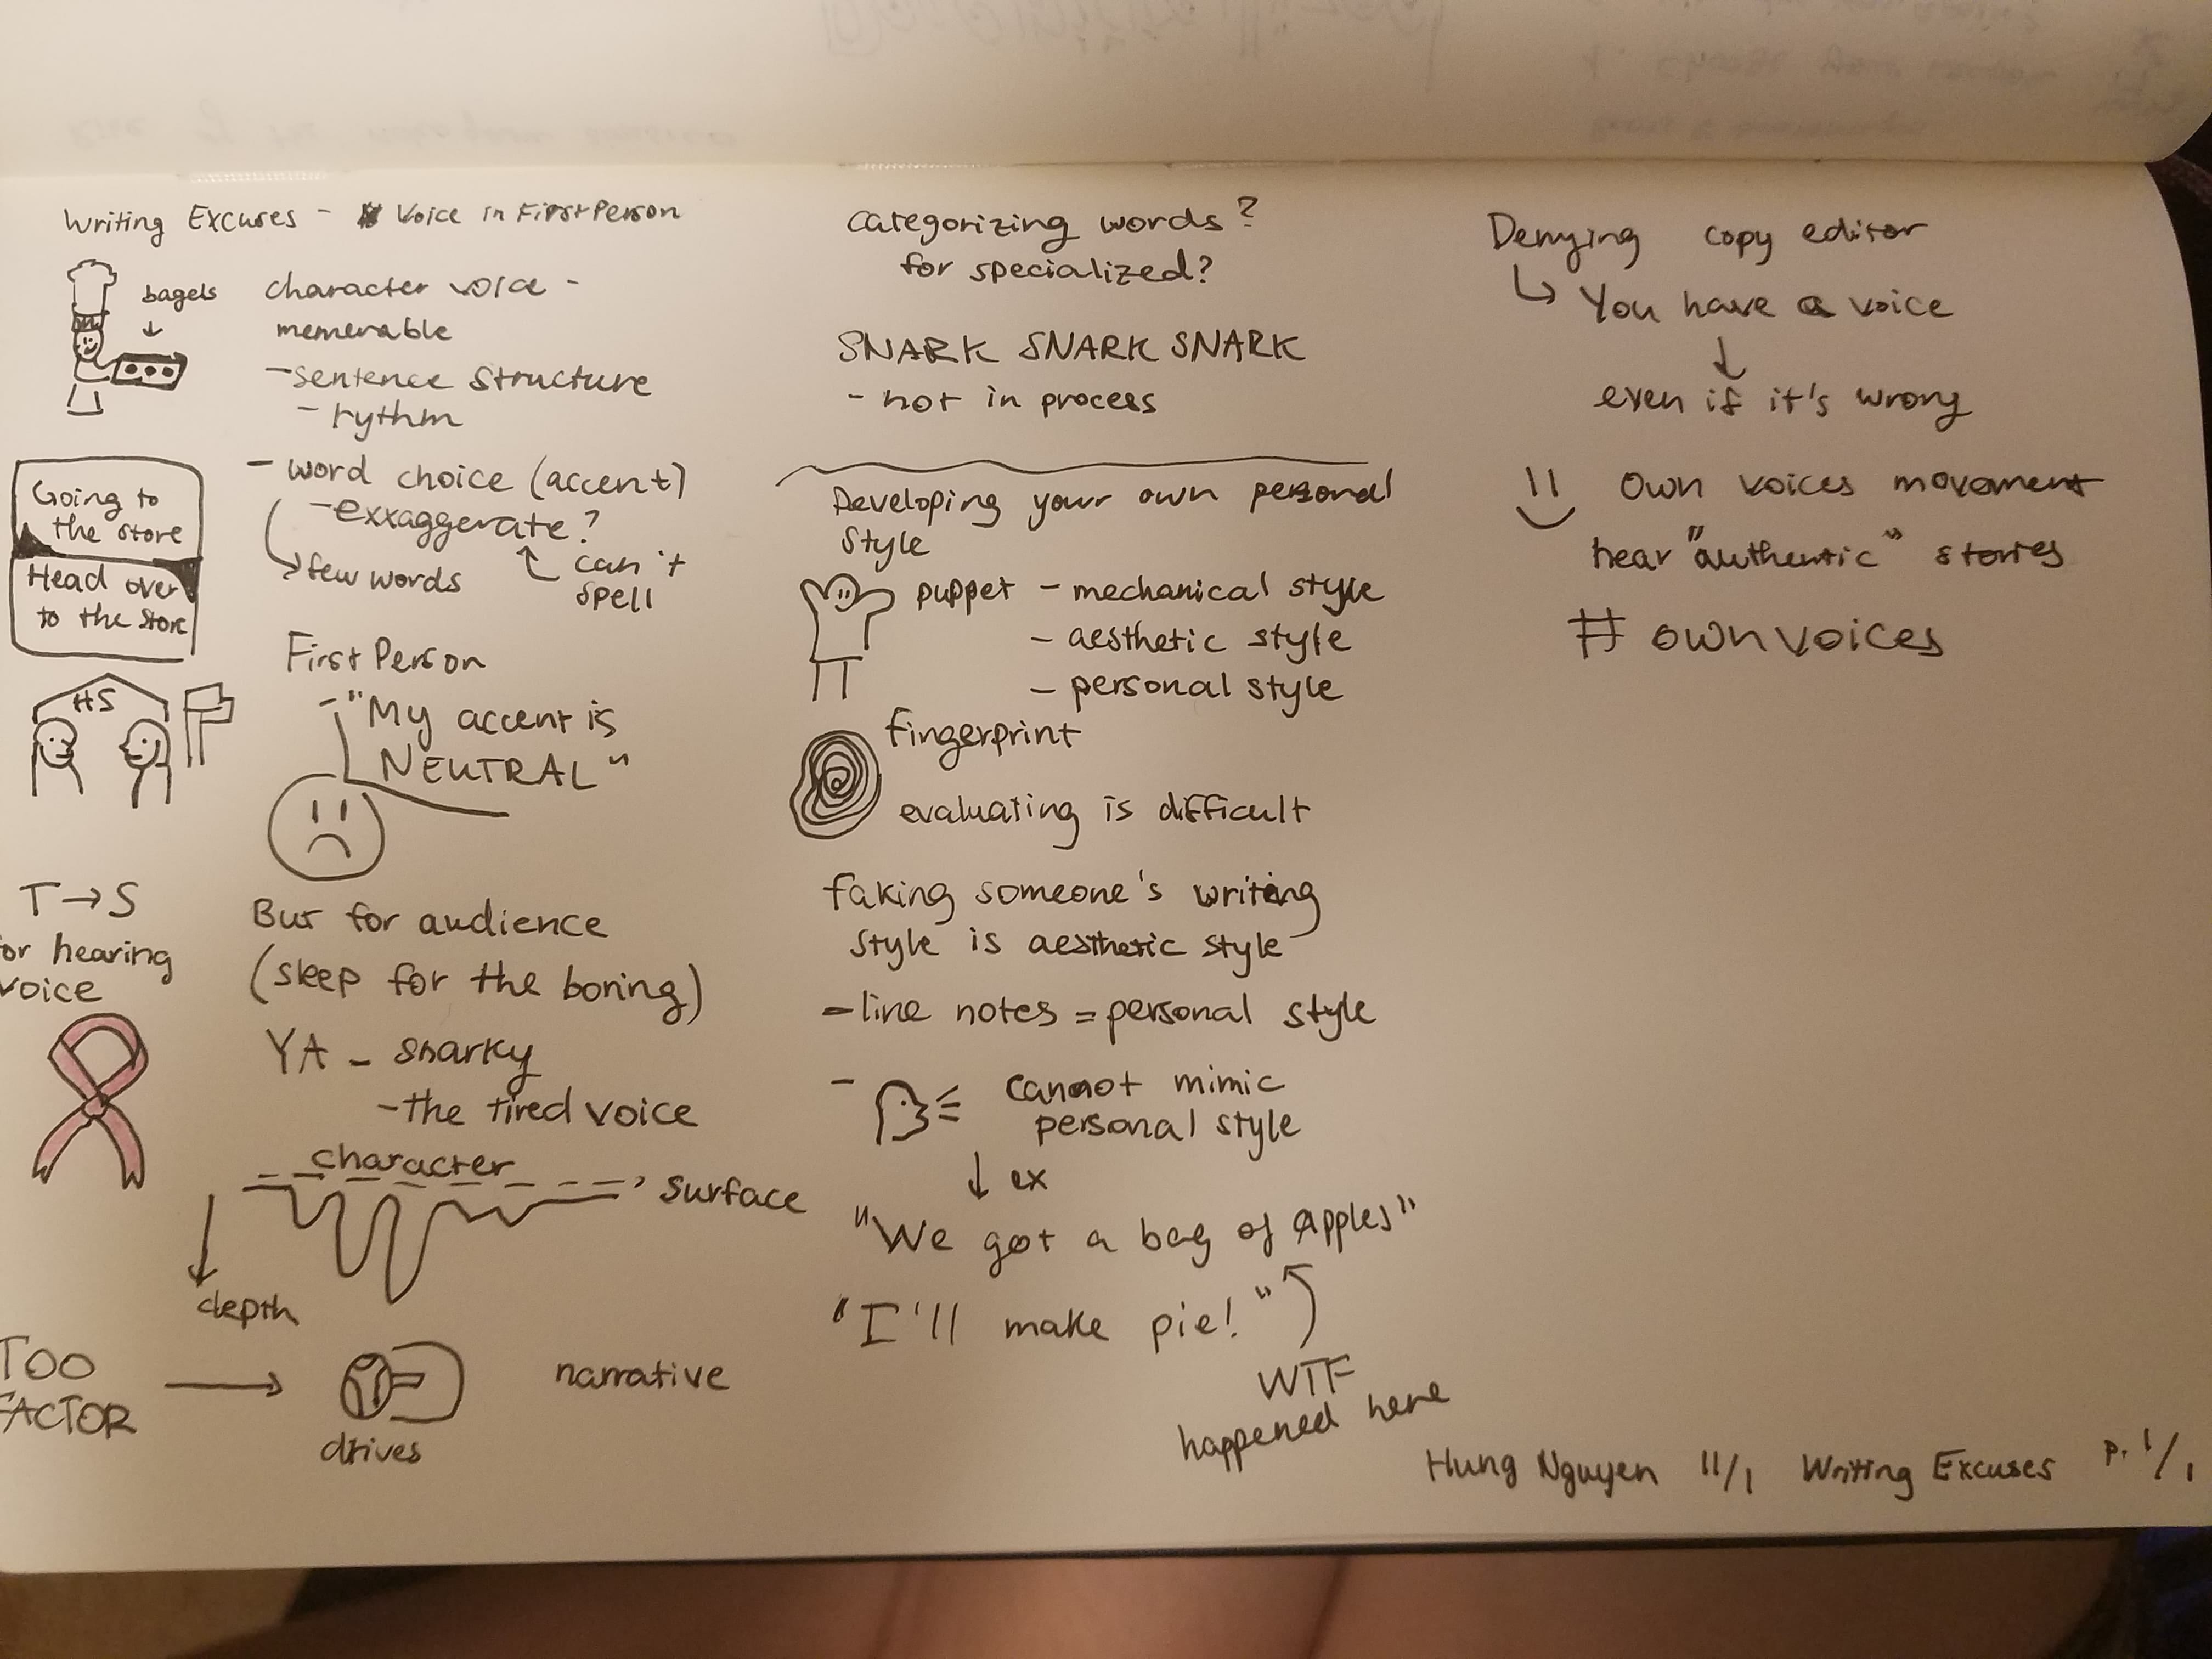 Writing Excuses - Voice in First Person
bagels
character voice -
memerable
- sentence structure
- rythm
- word choice (accent)
- exxaggerate?
few words
can't
spell
Going to
the store
Head over
to the store
First Person
- "My accent is
NEUTRAL"
HS
T → S
or hearing
voice
But for audience
(sleep for the boring)
YA - snarky
- the tired voice
character
surface
depth
TOO
FACTOR
drives
narrative
categorizing words?
for specialized?
SNARK SNARK SNARK
- not in process
Developing your own personal
style
puppet - mechanical style
- aesthetic style
- personal style
fingerprint
evaluating is difficult
faking someone's writing
style is aesthetic style
- line notes = personal style
- cannot mimic
personal style
↓ ex
"We got a bag of apples"
"I'll make pie!"
WTF
happened here
Denying copy editor
↳ You have a voice
↓
even if it's wrong
Own voices movement
hear "authentic" stories
# ownvoices
Hung Nguyen 11/1 Writing Excuses p. 1/1